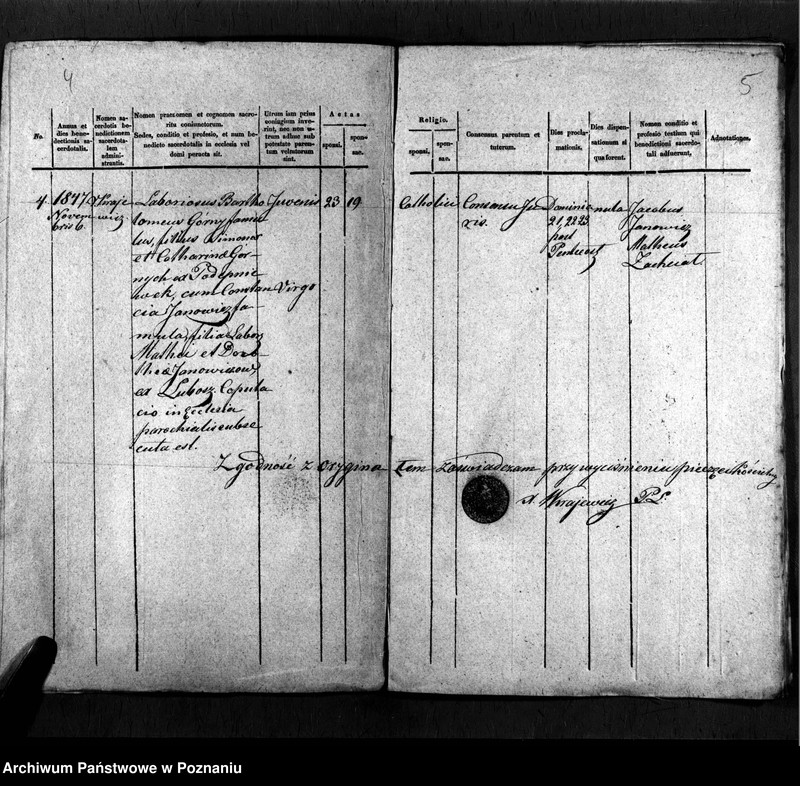 4
5
No.
Annus et
dies bene-
dictionis sa-
cerdotalis.
Nomen sa-
cerdotis be-
nedictionem
sacerdota-
lem
admini-
strantis.
Nomen praenomen et cognomen sacro-
ritu coniunctorum.
Sedes, conditio et profesio, et num be-
nedicto sacerdotalis in ecclesia vel
domi peracta sit.
Utrum iam prius
coniugium inve-
rint, nec non u-
trum adhuc sub
potestate paren-
tum velnutorum
sint.
Aetas
sponsi.
spon-
sae.
Religio.
sponsi.
spon-
sae.
Consensus parentum et
tutorum.
Dies procla-
mationis.
Dies dispen-
sationum si
qua forent.
Nomen conditio et
profesio testium qui
benedictioni sacerdo-
tali adfuerunt.
Adnotationes.
4
1847
Novem
bris 6.
Wraje
wicz
Laboriosus Bartho
lomeus Górny famu
lus, filius Simonis
et Catharinæ Gór-
nych ex
cum Constan
cia Janowicz fa-
mula, filia Labor
Mathei et Doro-
theæ Janowiczow
ex Lubosz. Copula
cio in Ecclesia
parochialis subse
cuta est.
Juvenis
Virgo
23
19
Catholici
Consensu Ju
ris.
Dominic
21, 22 23
post
Pentecost
nula
Jacobus
Janowicz
Matheus
Zgodność z orygina łem zaświadczam przy wyciśnieniu pieczęci kościelny
X. Wrajewicz P. L.
Archiwum Państwowe w Poznaniu